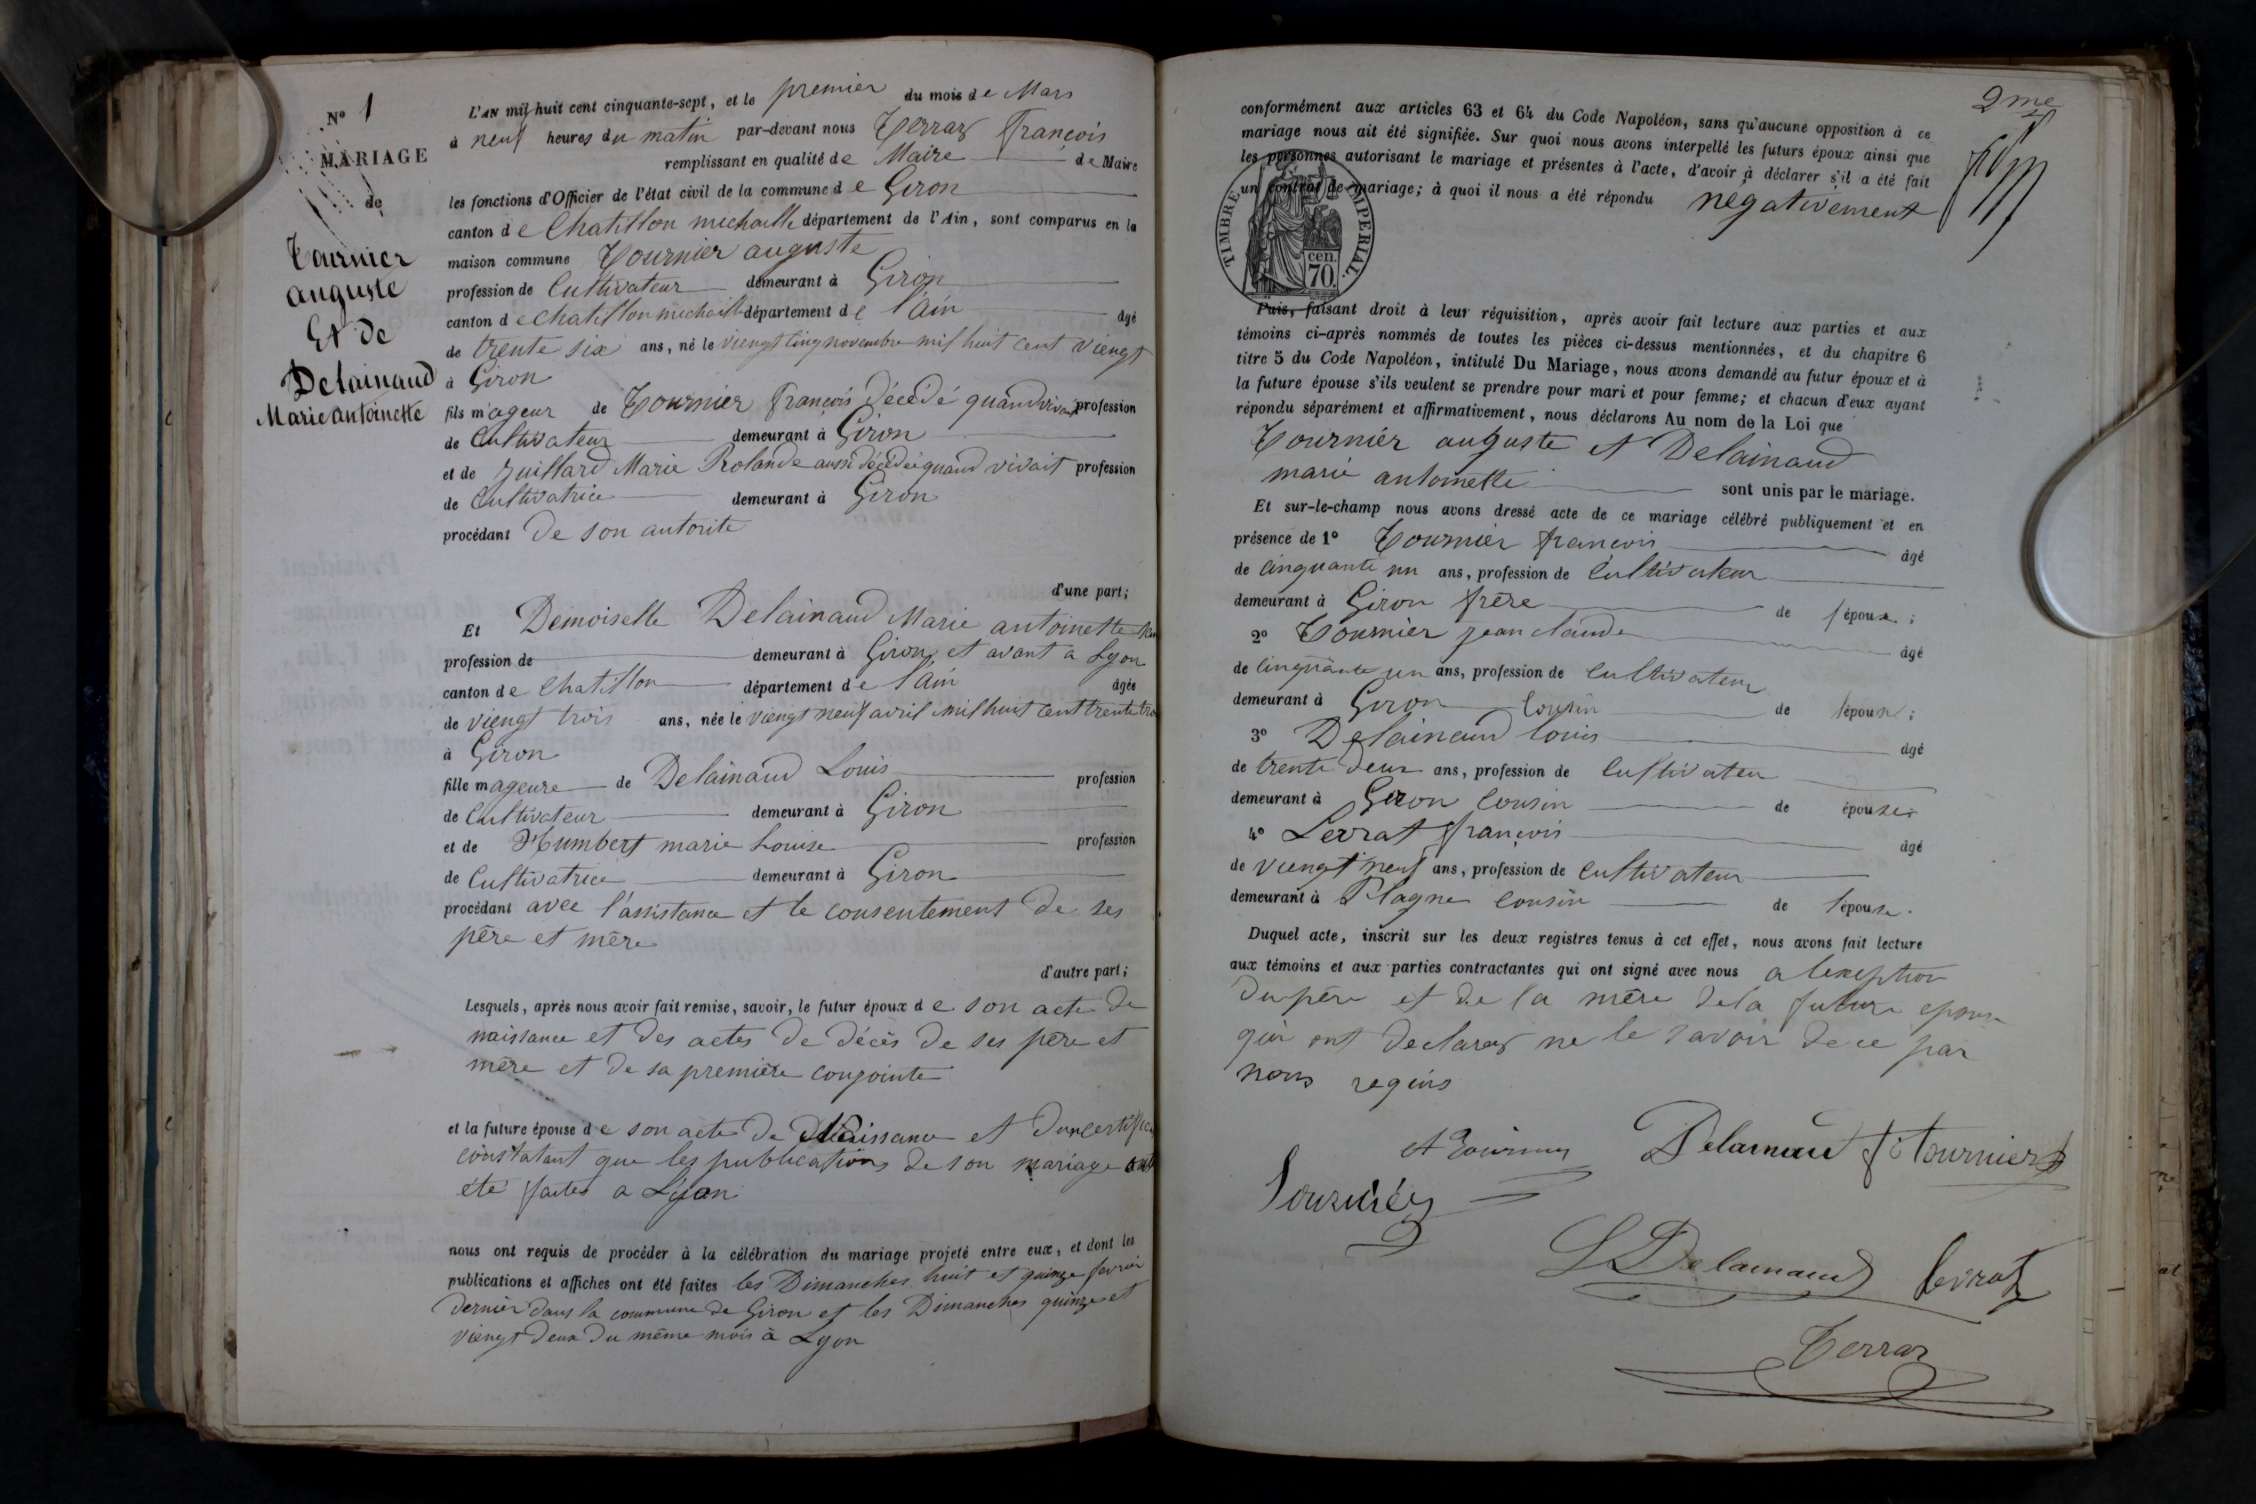 N° 1
MARIAGE
de
Tournier
auguste
Et de
Delainaud
Marie antoinette
L'AN mil huit cent cinquante-sept, et le premier du mois de Mars
à neuf heures du matin par-devant nous Terraz françois
remplissant en qualité de Maire de Maire
les fonctions d'Officier de l'état civil de la commune de Giron
canton de Chatillon michaille département de l'Ain, sont comparus en la
maison commune Tournier auguste
profession de Cultivateur demeurant à Giron
canton de chatillon michaille département de l'Ain âgé
de trente six ans, né le viengt cinq novembre mil huit cent viengt
à Giron
fils mageur de Tournier françois décédé quand vivait profession
de Cultivateur demeurant à Giron
et de Juillard Marie Rolande aussi décédée quand vivait profession
de Cultivatrice demeurant à Giron
procédant de son autorite
d'une part;
Et Demoiselle Delainaud Marie antoinette
profession de demeurant à Giron et avant a Lyon
canton de Chatillon département de l'Ain âgée
de viengt trois ans, née le viengt neuf avril mil huit cent trente trois
à Giron
fille mageure de Delainaud Louis profession
de Cultivateur demeurant à Giron
et de Humbert marie Louise profession
de Cultivatrice demeurant à Giron
procédant avec l'assistance et le consentement de ses
père et mère
d'autre part;
Lesquels, après nous avoir fait remise, savoir, le futur époux de son acte de
naissance et des actes de décès de ses père et
mère et de sa première conjointe
et la future épouse de son acte de Naissance et d'un certificat
constatant que les publications de son mariage ont
été faites a Lyon
nous ont requis de procéder à la célébration du mariage projeté entre eux, et dont les
publications et affiches ont été faites les Dimanches huit et quinze fevrier
dernier dans la commune de Giron et les Dimanches quinze et
viengt deux du même mois à Lyon
2me
conformément aux articles 63 et 64 du Code Napoléon, sans qu'aucune opposition à ce
mariage nous ait été signifiée. Sur quoi nous avons interpellé les futurs époux ainsi que
les personnes autorisant le mariage et présentes à l'acte, d'avoir à déclarer s'il a été fait
un contrat de mariage; à quoi il nous a été répondu négativement
TIMBRE IMPERIAL.
cen.
70.
Puis, faisant droit à leur réquisition, après avoir fait lecture aux parties et aux
témoins ci-après nommés de toutes les pièces ci-dessus mentionnées, et du chapitre 6
titre 5 du Code Napoléon, intitulé Du Mariage, nous avons demandé au futur époux et à
la future épouse s'ils veulent se prendre pour mari et pour femme; et chacun d'eux ayant
répondu séparément et affirmativement, nous déclarons Au nom de la Loi que
Tournier auguste et Delainaud
marie antoinette sont unis par le mariage.
Et sur-le-champ nous avons dressé acte de ce mariage célébré publiquement et en
présence de 1° Tournier françois âgé
de cinquante un ans, profession de Cultivateur
demeurant à Giron frère de l'époux;
2° Tournier jean claude âgé
de cinquante un ans, profession de cultivateur
demeurant à Giron Cousin de l'époux;
3° Delainaud Louis âgé
de trente deux ans, profession de Cultivateur
demeurant à Giron Cousin de épouse
4° Levrat françois âgé
de viengt neuf ans, profession de Cultivateur
demeurant à Plagne Cousin de l'épouse.
Duquel acte, inscrit sur les deux registres tenus à cet effet, nous avons fait lecture
aux témoins et aux parties contractantes qui ont signé avec nous a lexeption
du père et de la mère de la future epouse
qui ont declaraz ne le savoir de ce par
nous requis
A Tournier Delainaud fs Tournier
Tournier
L Delainaud Levrat
Terraz